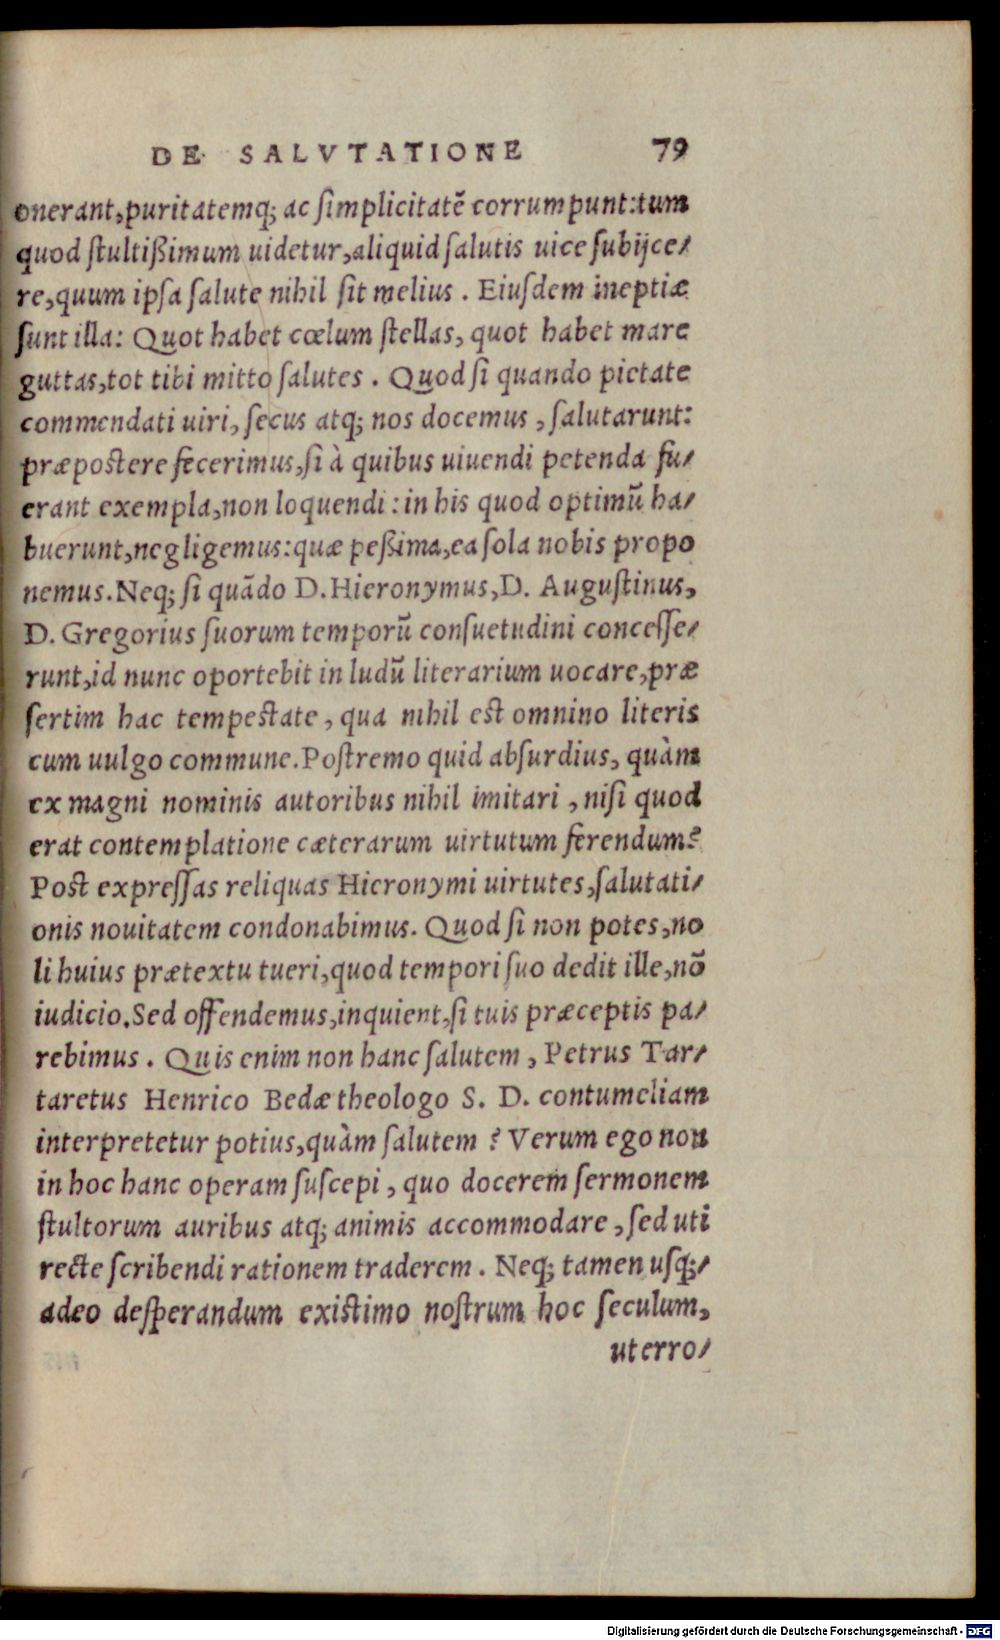 DE SALVTATIONE 79
onerant,puritatemq; ac ſimplicitatẽ corrumpunt:tum
quod ſtultißimum uidetur,aliquid ſalutis uice ſubijce/
re,quum ipſa ſalute nihil ſit melius . Eiuſdem ineptiæ
ſunt illa: Quot habet cœlum ſtellas, quot habet mare
guttas,tot tibi mitto ſalutes . Quod ſi quando pietate
commendati uiri, ſecus atq; nos docemus , ſalutarunt:
præpoſtere fecerimus,ſi à quibus uiuendi petenda fu/
erant exempla,non loquendi : in his quod optimũ ha/
buerunt,negligemus:quæ peßima,ea ſola nobis propo
nemus.Neq; ſi quãdo D.Hieronymus,D. Auguſtinus,
D. Gregorius ſuorum temporũ conſuetudini conceſſe/
runt,id nunc oportebit in ludũ literarium uocare,præ
ſertim hac tempeſtate , qua nihil eſt omnino literis
cum uulgo commune.Poſtremo quid abſurdius, quàm
ex magni nominis autoribus nihil imitari , niſi quod
erat contemplatione cæterarum uirtutum ferendum?
Poſt expreſſas reliquas Hieronymi uirtutes,ſalutati/
onis nouitatem condonabimus. Quod ſi non potes,no
li huius prætextu tueri,quod tempori ſuo dedit ille,nõ
iudicio.Sed offendemus,inquient,ſi tuis præceptis pa/
rebimus . Quis enim non hanc ſalutem , Petrus Tar/
taretus Henrico Bedæ theologo S. D. contumeliam
interpretetur potius,quàm ſalutem ? Verum ego non
in hoc hanc operam ſuſcepi , quo docerem ſermonem
ſtultorum auribus atq; animis accommodare , ſed uti
recte ſcribendi rationem traderem . Neq; tamen uſq;/
adeo deſperandum exiſtimo noſtrum hoc ſeculum,
ut erro/
Digitalisierung gefördert durch die Deutsche Forschungsgemeinschaft - DFG